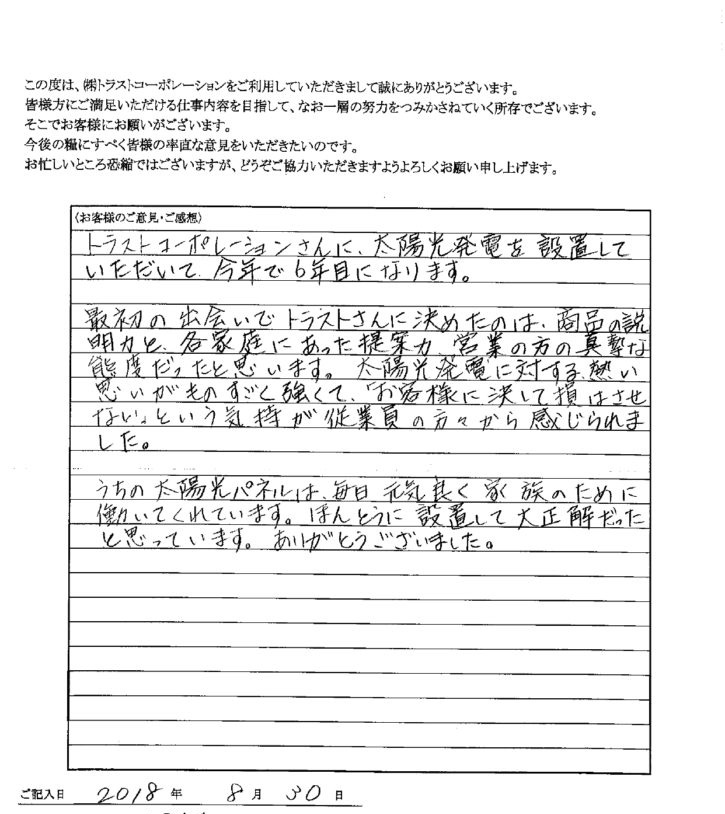 この度は、㈱トラストコーポレーションをご利用していただきまして誠にありがとうございます。
皆様方にご満足いただける仕事内容を目指して、なお一層の努力をつみかさねていく所存でございます。
そこでお客様にお願いがございます。
今後の糧にすべく皆様の率直な意見をいただきたいのです。
お忙しいところ恐縮ではございますが、どうぞご協力いただきますようよろしくお願い申し上げます。
(お客様のご意見・ご感想)
トラストコーポレーションさんに、太陽光発電を設置して
いただいて、今年で6年目になります。
最初の出会いでトラストさんに決めたのは、商品の説
明力と、各家庭にあった提案力、営業の方の真摯な
態度だったと思います。太陽光発電に対する熱い
思いがものすごく強くて、「お客様に決して損はさせ
ない」という気持が従業員の方々から感じられま
した。
うちの太陽光パネルは、毎日元気良く家族のために
働いてくれています。ほんとうに設置して大正解だった
と思っています。ありがとうございました。
ご記入日 2018 年 8 月 30 日